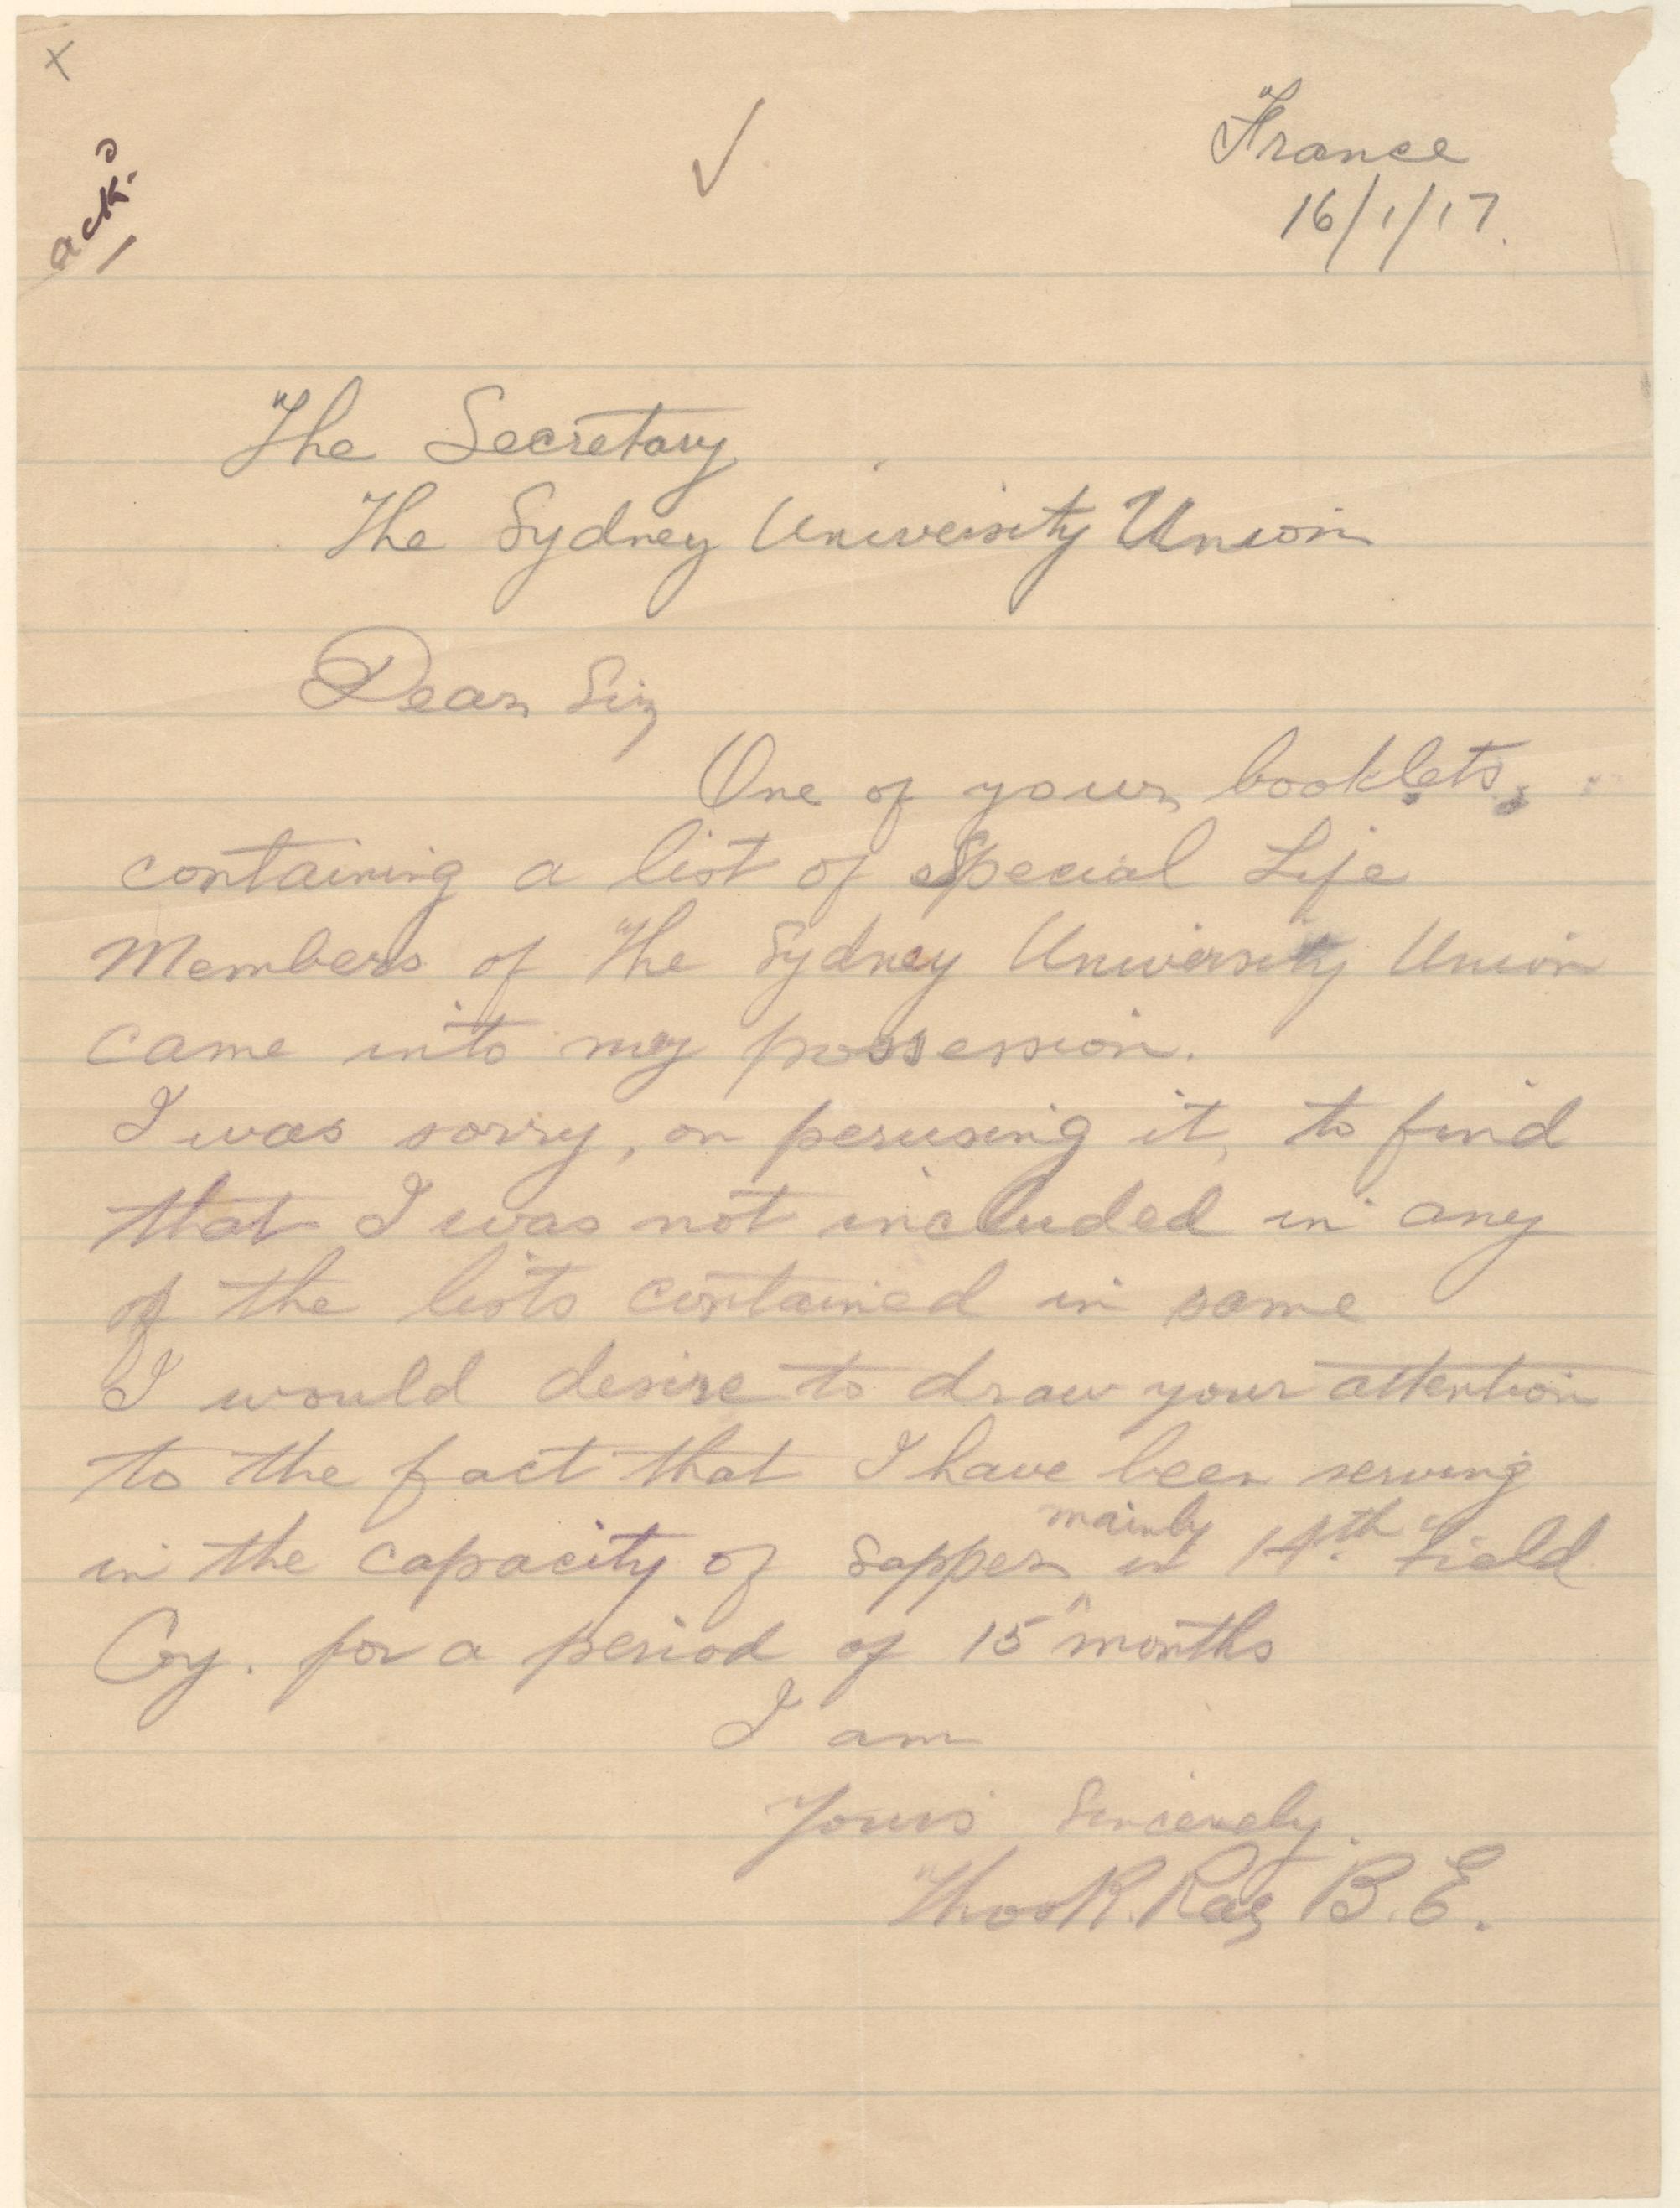 x
ackd
France
16/1/17.
The Secretary
The Sydney University Union
Dear Sir,
One of your booklets,
containing a list of Special Life
Members of The Sydney University Union
came into my possession.
I was sorry, on perusing it, to find
that I was not included in any
of the lists contained in same
I would desire to draw your attention
to the fact that I have been serving
in the capacity of Sapper mainly in 14th Field
Coy. for a period of 15 months
I am
Yours Sincerely.
Thos R. Rae B.E.